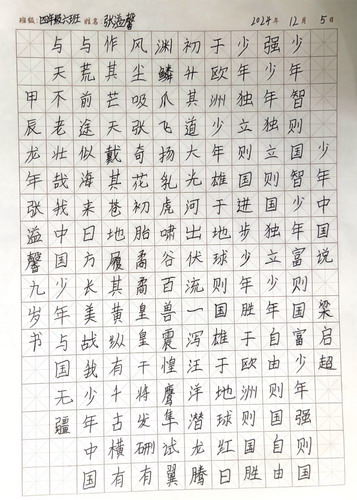 班级:四年级六班 姓名:张溢馨 2024年12月5日
少年中国说 梁启超
少年智则国智少年富则国富少年强则国
强少年独立则国独立少年自由则国自由
少年进步则国进步少年胜于欧洲则国胜
于欧洲少年雄于地球则国雄于地球红日
初升其道大光河出伏流一泻汪洋潜龙腾
渊鳞爪飞扬乳虎啸谷百兽震惶鹰隼试翼
风尘吸张奇花初胎矞矞皇皇干将发硎有
作其芒天戴其苍地履其黄纵有千古横有
与荒前途似海来日方长美战我少年中国
与天不老壮哉我中国少年与国无疆
甲辰龙年张溢馨九岁书